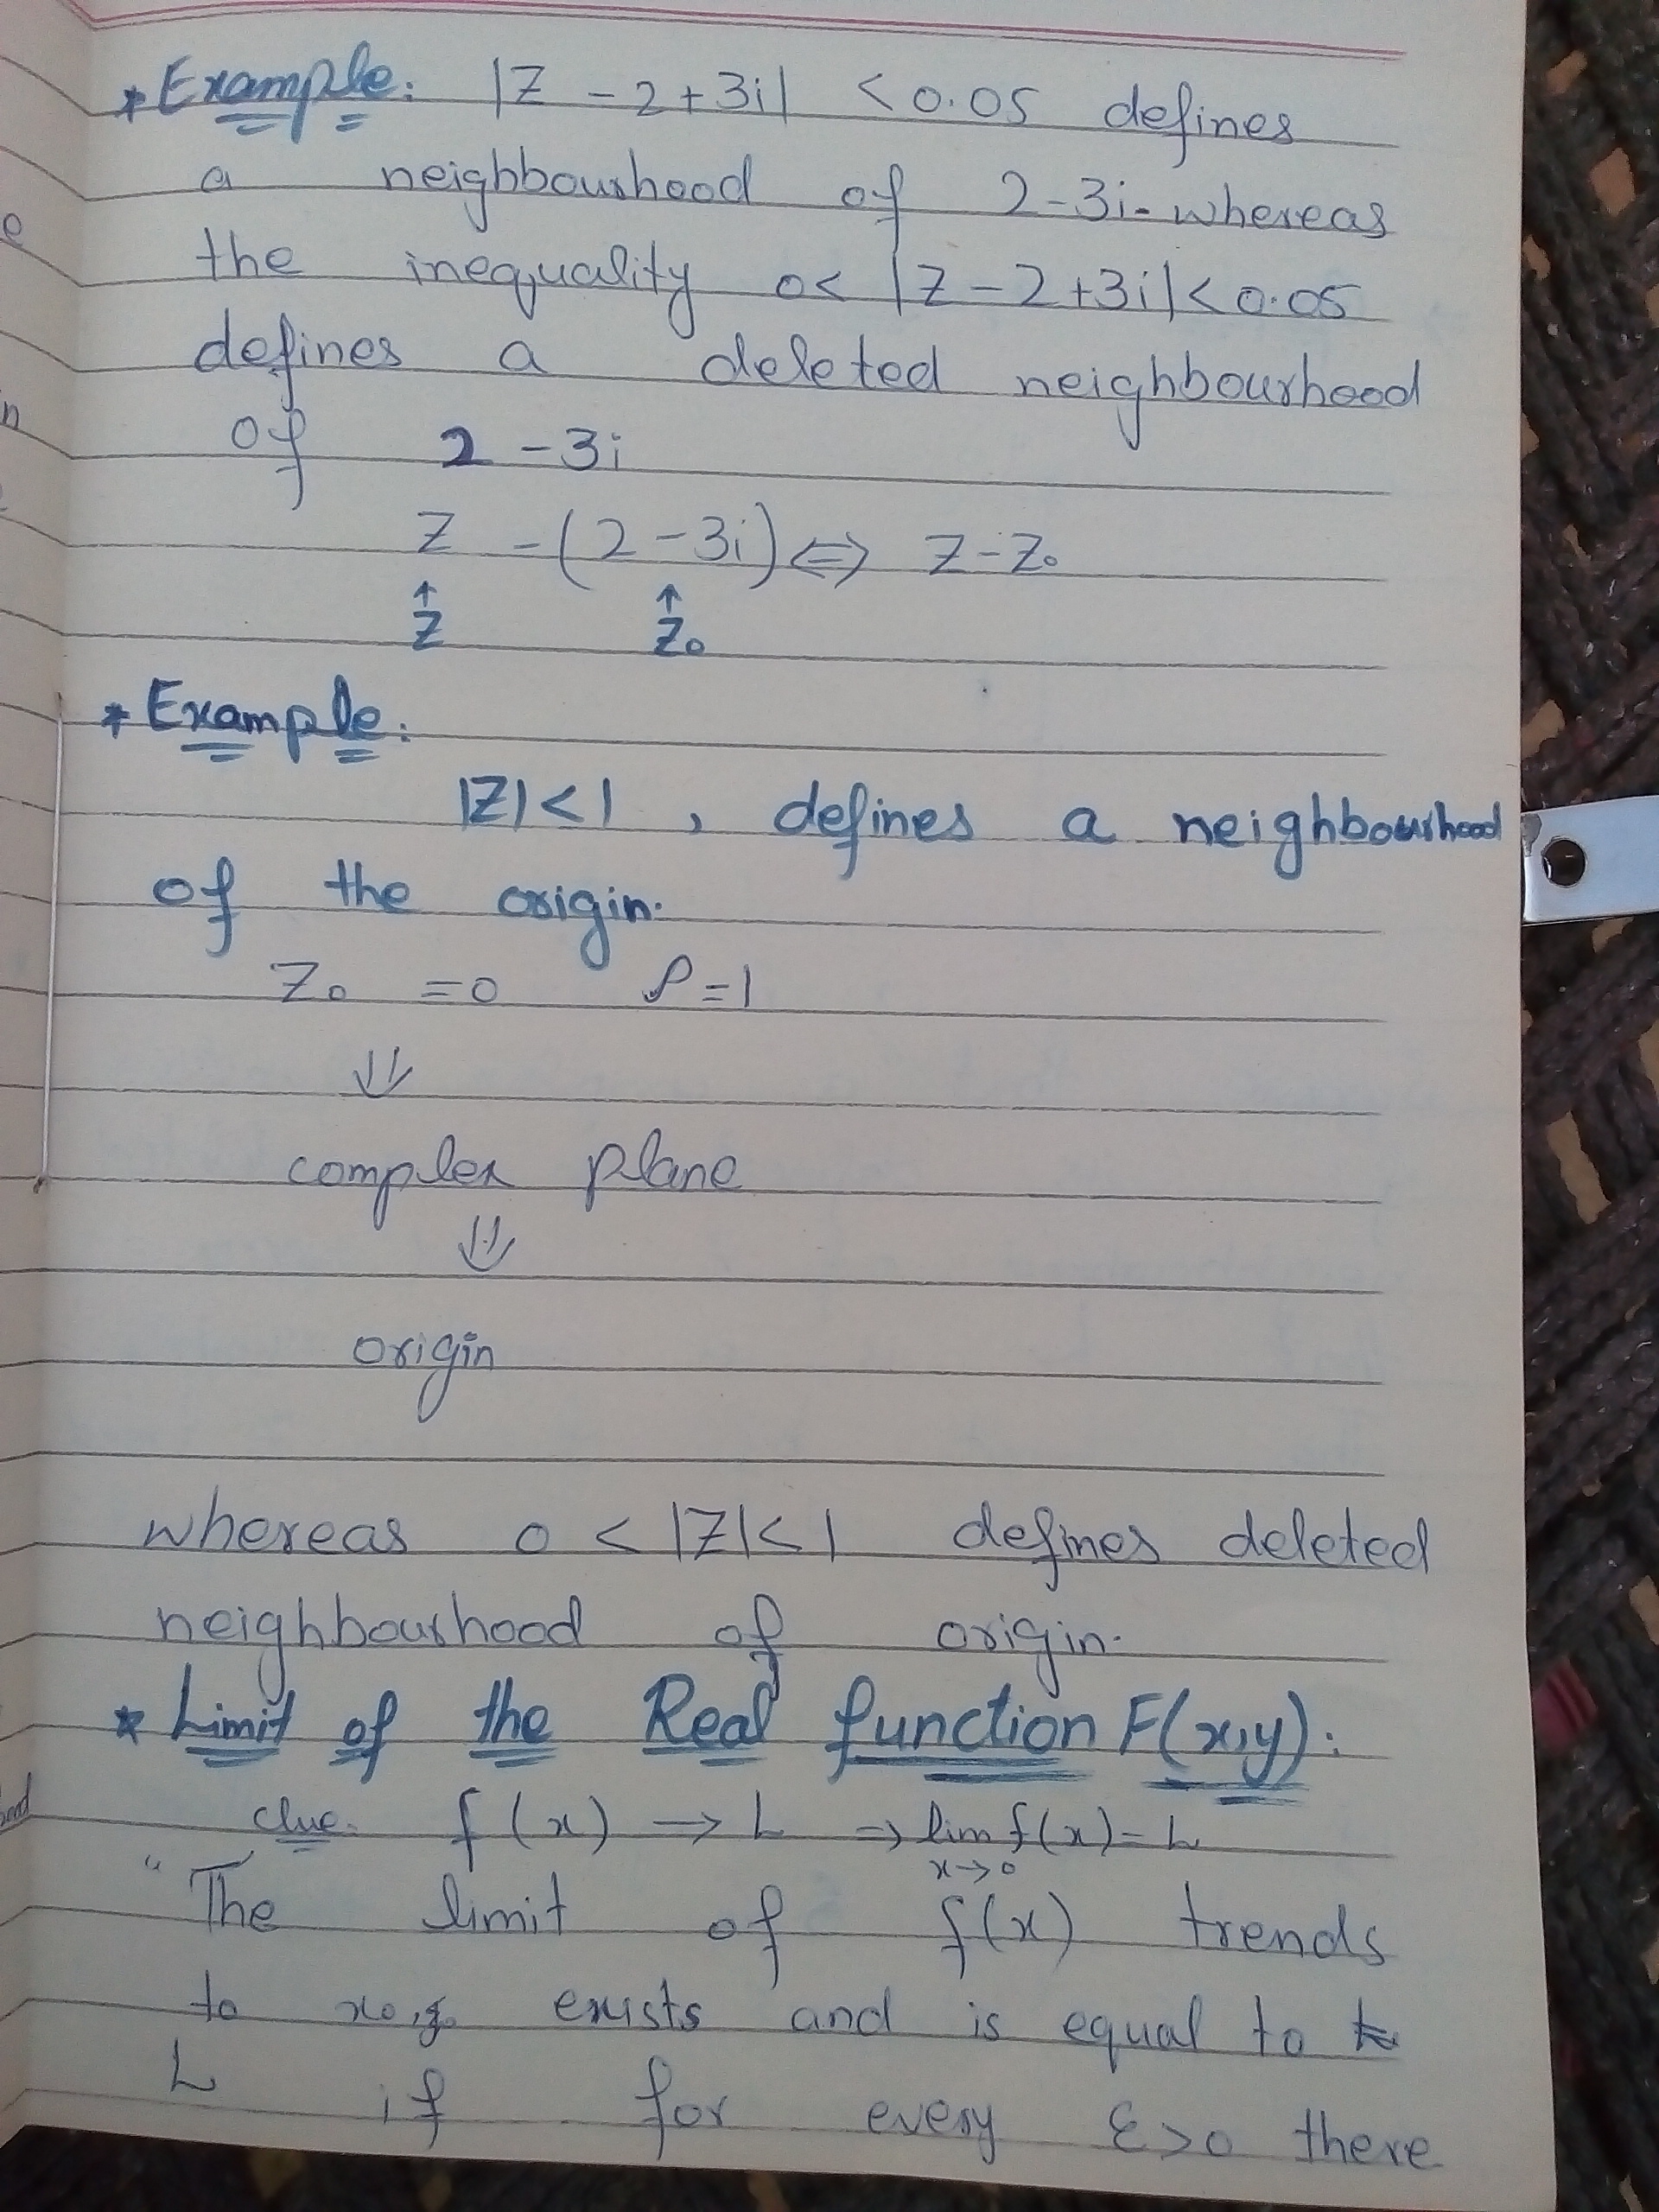 * Example: |Z - 2 + 3i| < 0.05 defines
a neighbourhood of 2 - 3i. whereas
the inequality 0 < |Z - 2 + 3i| < 0.05
defines a deleted neighbourhood
of 2 - 3i
Z - (2 - 3i) ⇔ Z - Z₀
↑ ↑
Z Z₀
* Example:
|Z| < 1 , defines a neighbourhood
of the origin.
Z₀ = 0 ρ = 1
⇓
complex plane
⇓
origin
whereas 0 < |Z| < 1 defines deleted
neighbourhood of origin.
* Limit of the Real function F(x,y):
clue. f(x) → L ⇒ lim f(x) = L
x→0
"The limit of f(x) trends
to x₀, y₀ exists and is equal to
L if for every ε > 0 there